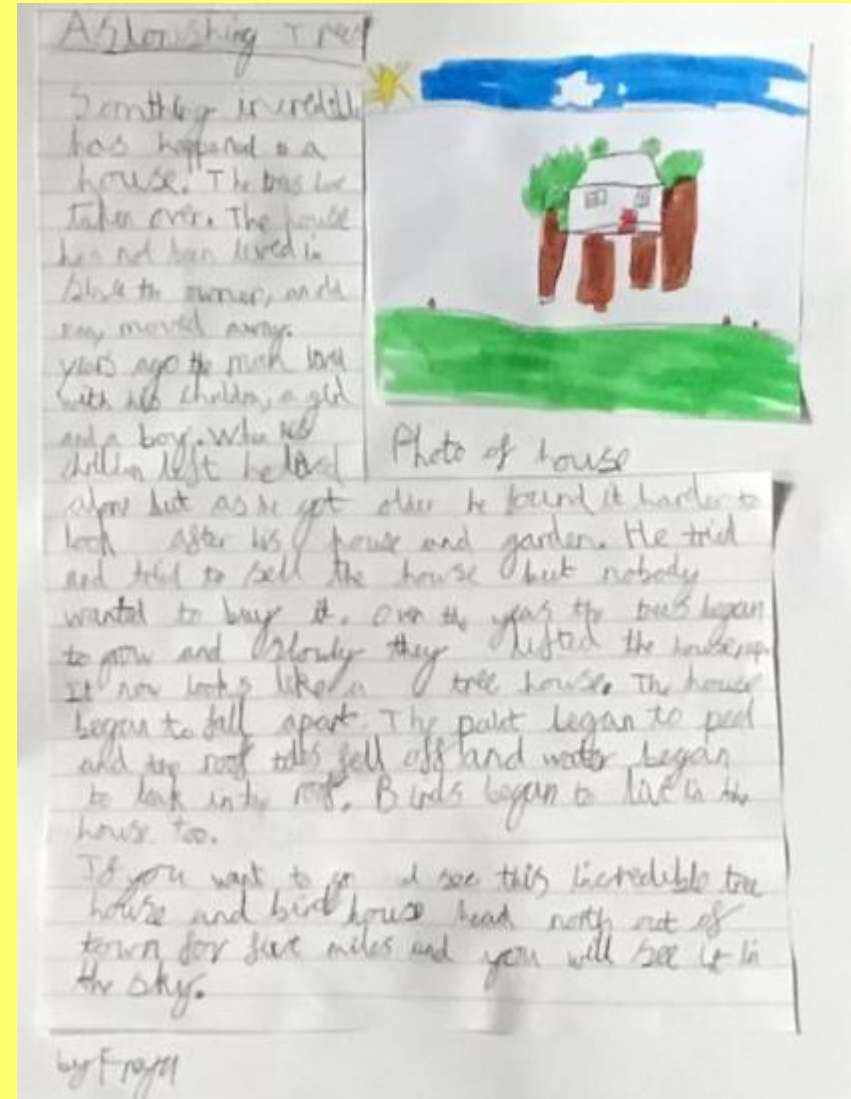 Astonishing Trees
Somthing incredible
has happened to a
house. The trees have
taken over. The house
has not been lived in
since the owner,
moved away.
years ago the man lived
with his children, a girl
and a boy. When his
children left he lived
alone but as he got older he found it harder to
look after his house and garden. He tried
and tried to sell the house but nobody
wanted to buy it. Over the years the trees began
to grow and slowly they lifted the house up.
It now looks like a tree house. The house
began to fall apart. The paint began to peel
and the roof tiles fell off and water began
to leak in the roof. Birds began to live in the
house too.
If you want to go see this incredible tree
house and bird house head north out of
town for five miles and you will see it in
the sky.
Photo of house
by